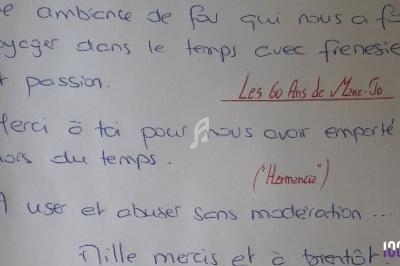 e ambiance de fou qui nous a fa
oyager dans le temps avec frenesie
t passion.
Les 60 Ans de Marie-Jo
Merci à toi pour nous avoir emporté
hors du temps.
("Hermancia")
A user et abuser sans modération...
Mille mercis et à bientôt.
100